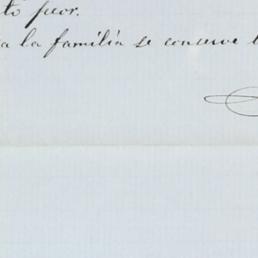 peor.
a la familia se conserve